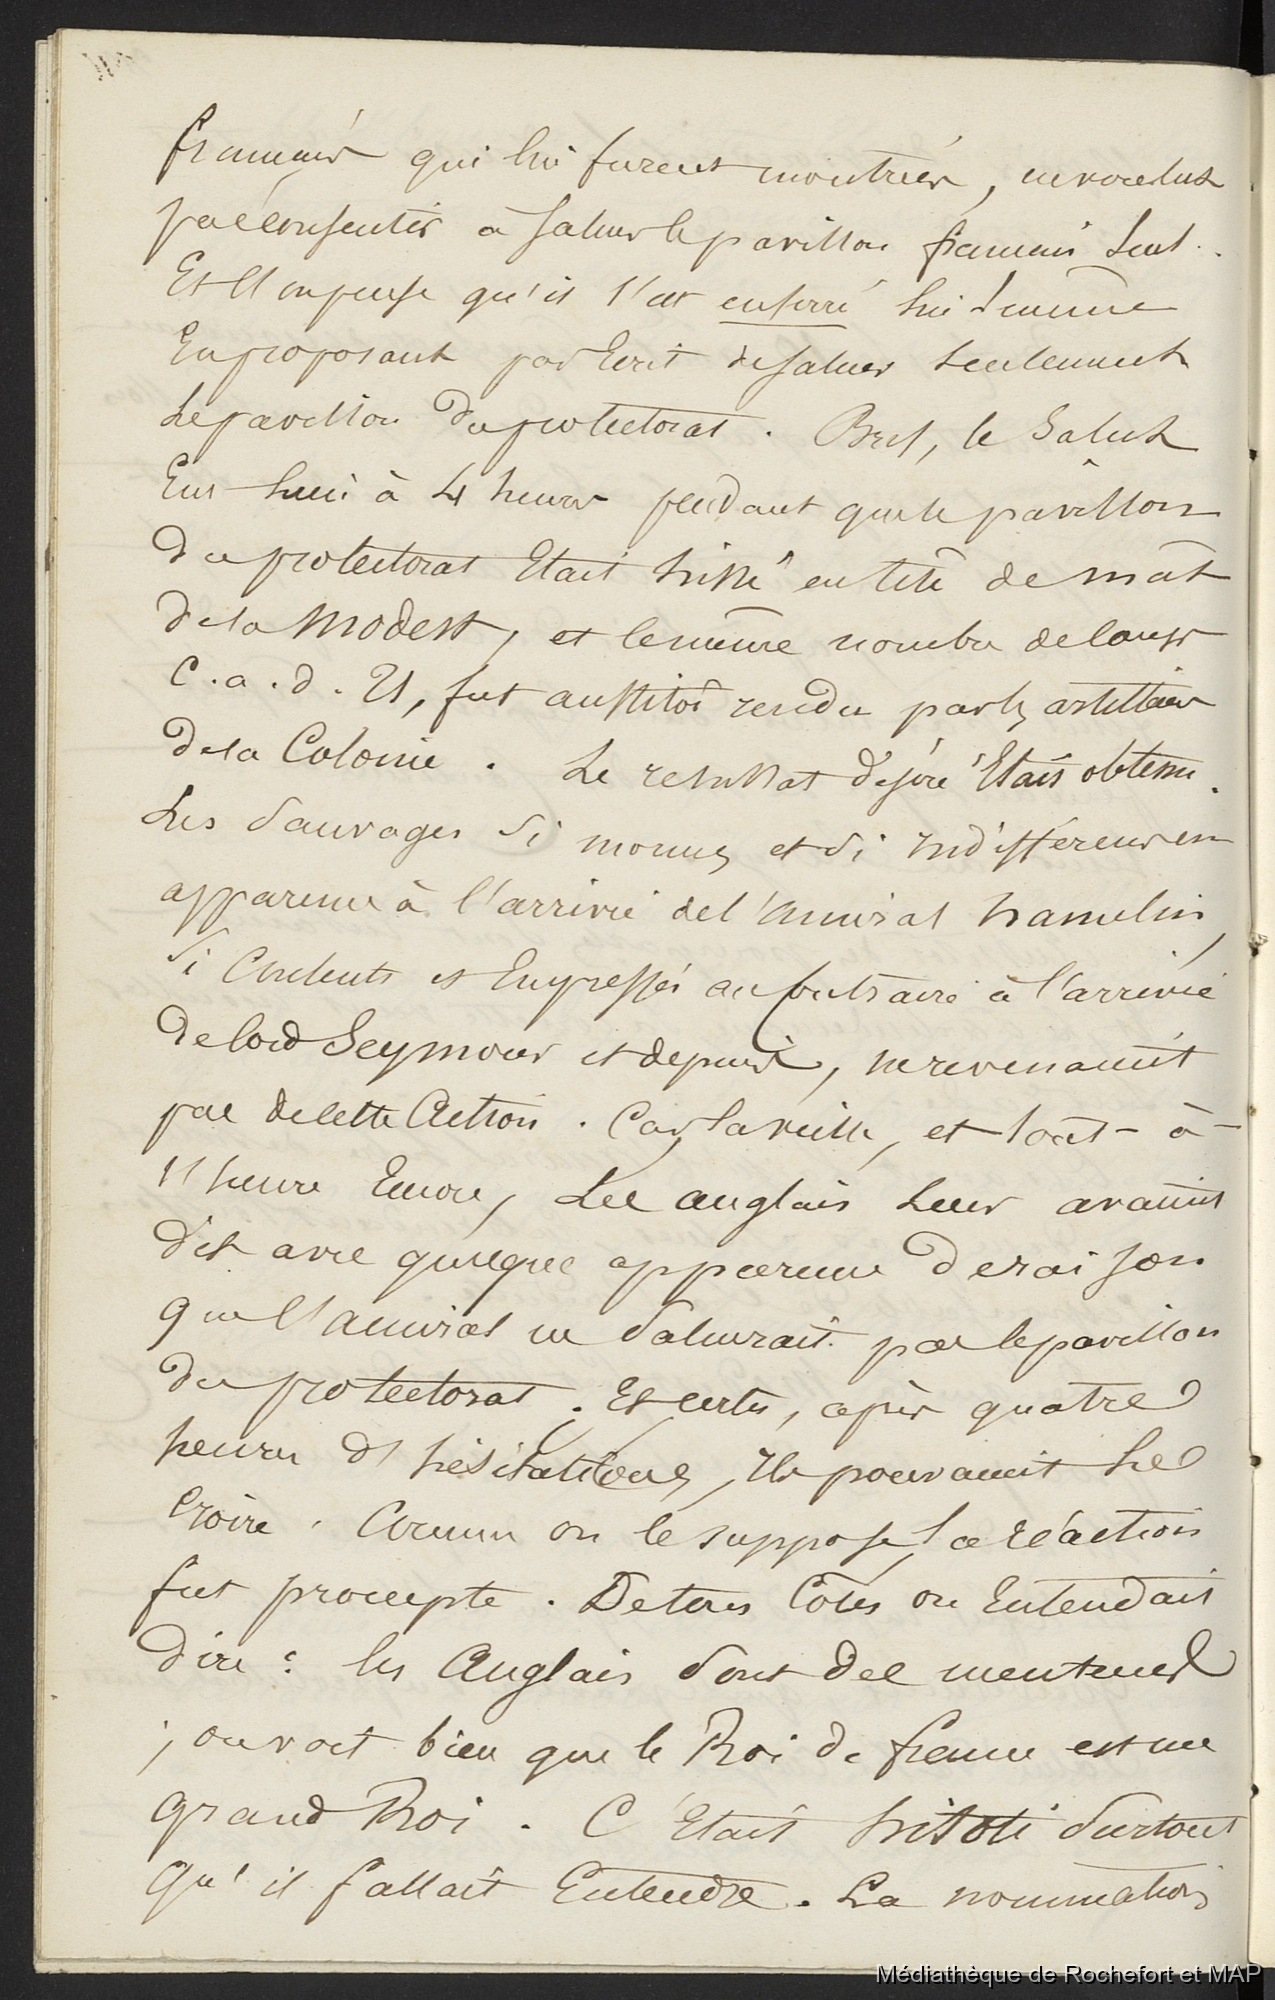 français qui lui furent montrées, ne voulut
pas consentir à saluer le pavillon français seul.
Et l'on pense qu'il s'est enferré lui-même
En proposant par Ecrit de saluer seulement
Le pavillon du protectorat. Bref, le Salut
Eut lieu à 4 heures pendant que le pavillon
Du protectorat Etait hissé en tête de mât
De la Modeste, et le même nombre de coups
C.a.d. 21, fut aussitôt rendu par les artilleurs
De la Colonie. Le resultat désiré Etait obtenu.
Les Sauvages Si mornes et Si Indifférens en
apparence à l'arrivée de l'amiral hamelin,
Si Contents et Empressés au Contraire à l'arrivée
De lord Seymour et depuis, ne revenaient
pas de cette Action. Car, la veille, et tout-à-
l'heure Encore, Les anglais Leur avaient
dit avec quelque apparence De raison
que l'amiral ne Saluerait pas le pavillon
Du protectorat. Et certes, après quatre
heures d'hésitations, Ils pouvaient Le
croire. Comme on le suppose, La réaction
fut prompte. De tous Côtés on Entendait
Dire : les Anglais Sont des menteurs
; on voit bien que le Roi de france est un
grand Roi. C'Etait hitoti Surtout
Qu'il fallait Entendre. La nomination
Médiathèque de Rochefort et MAP